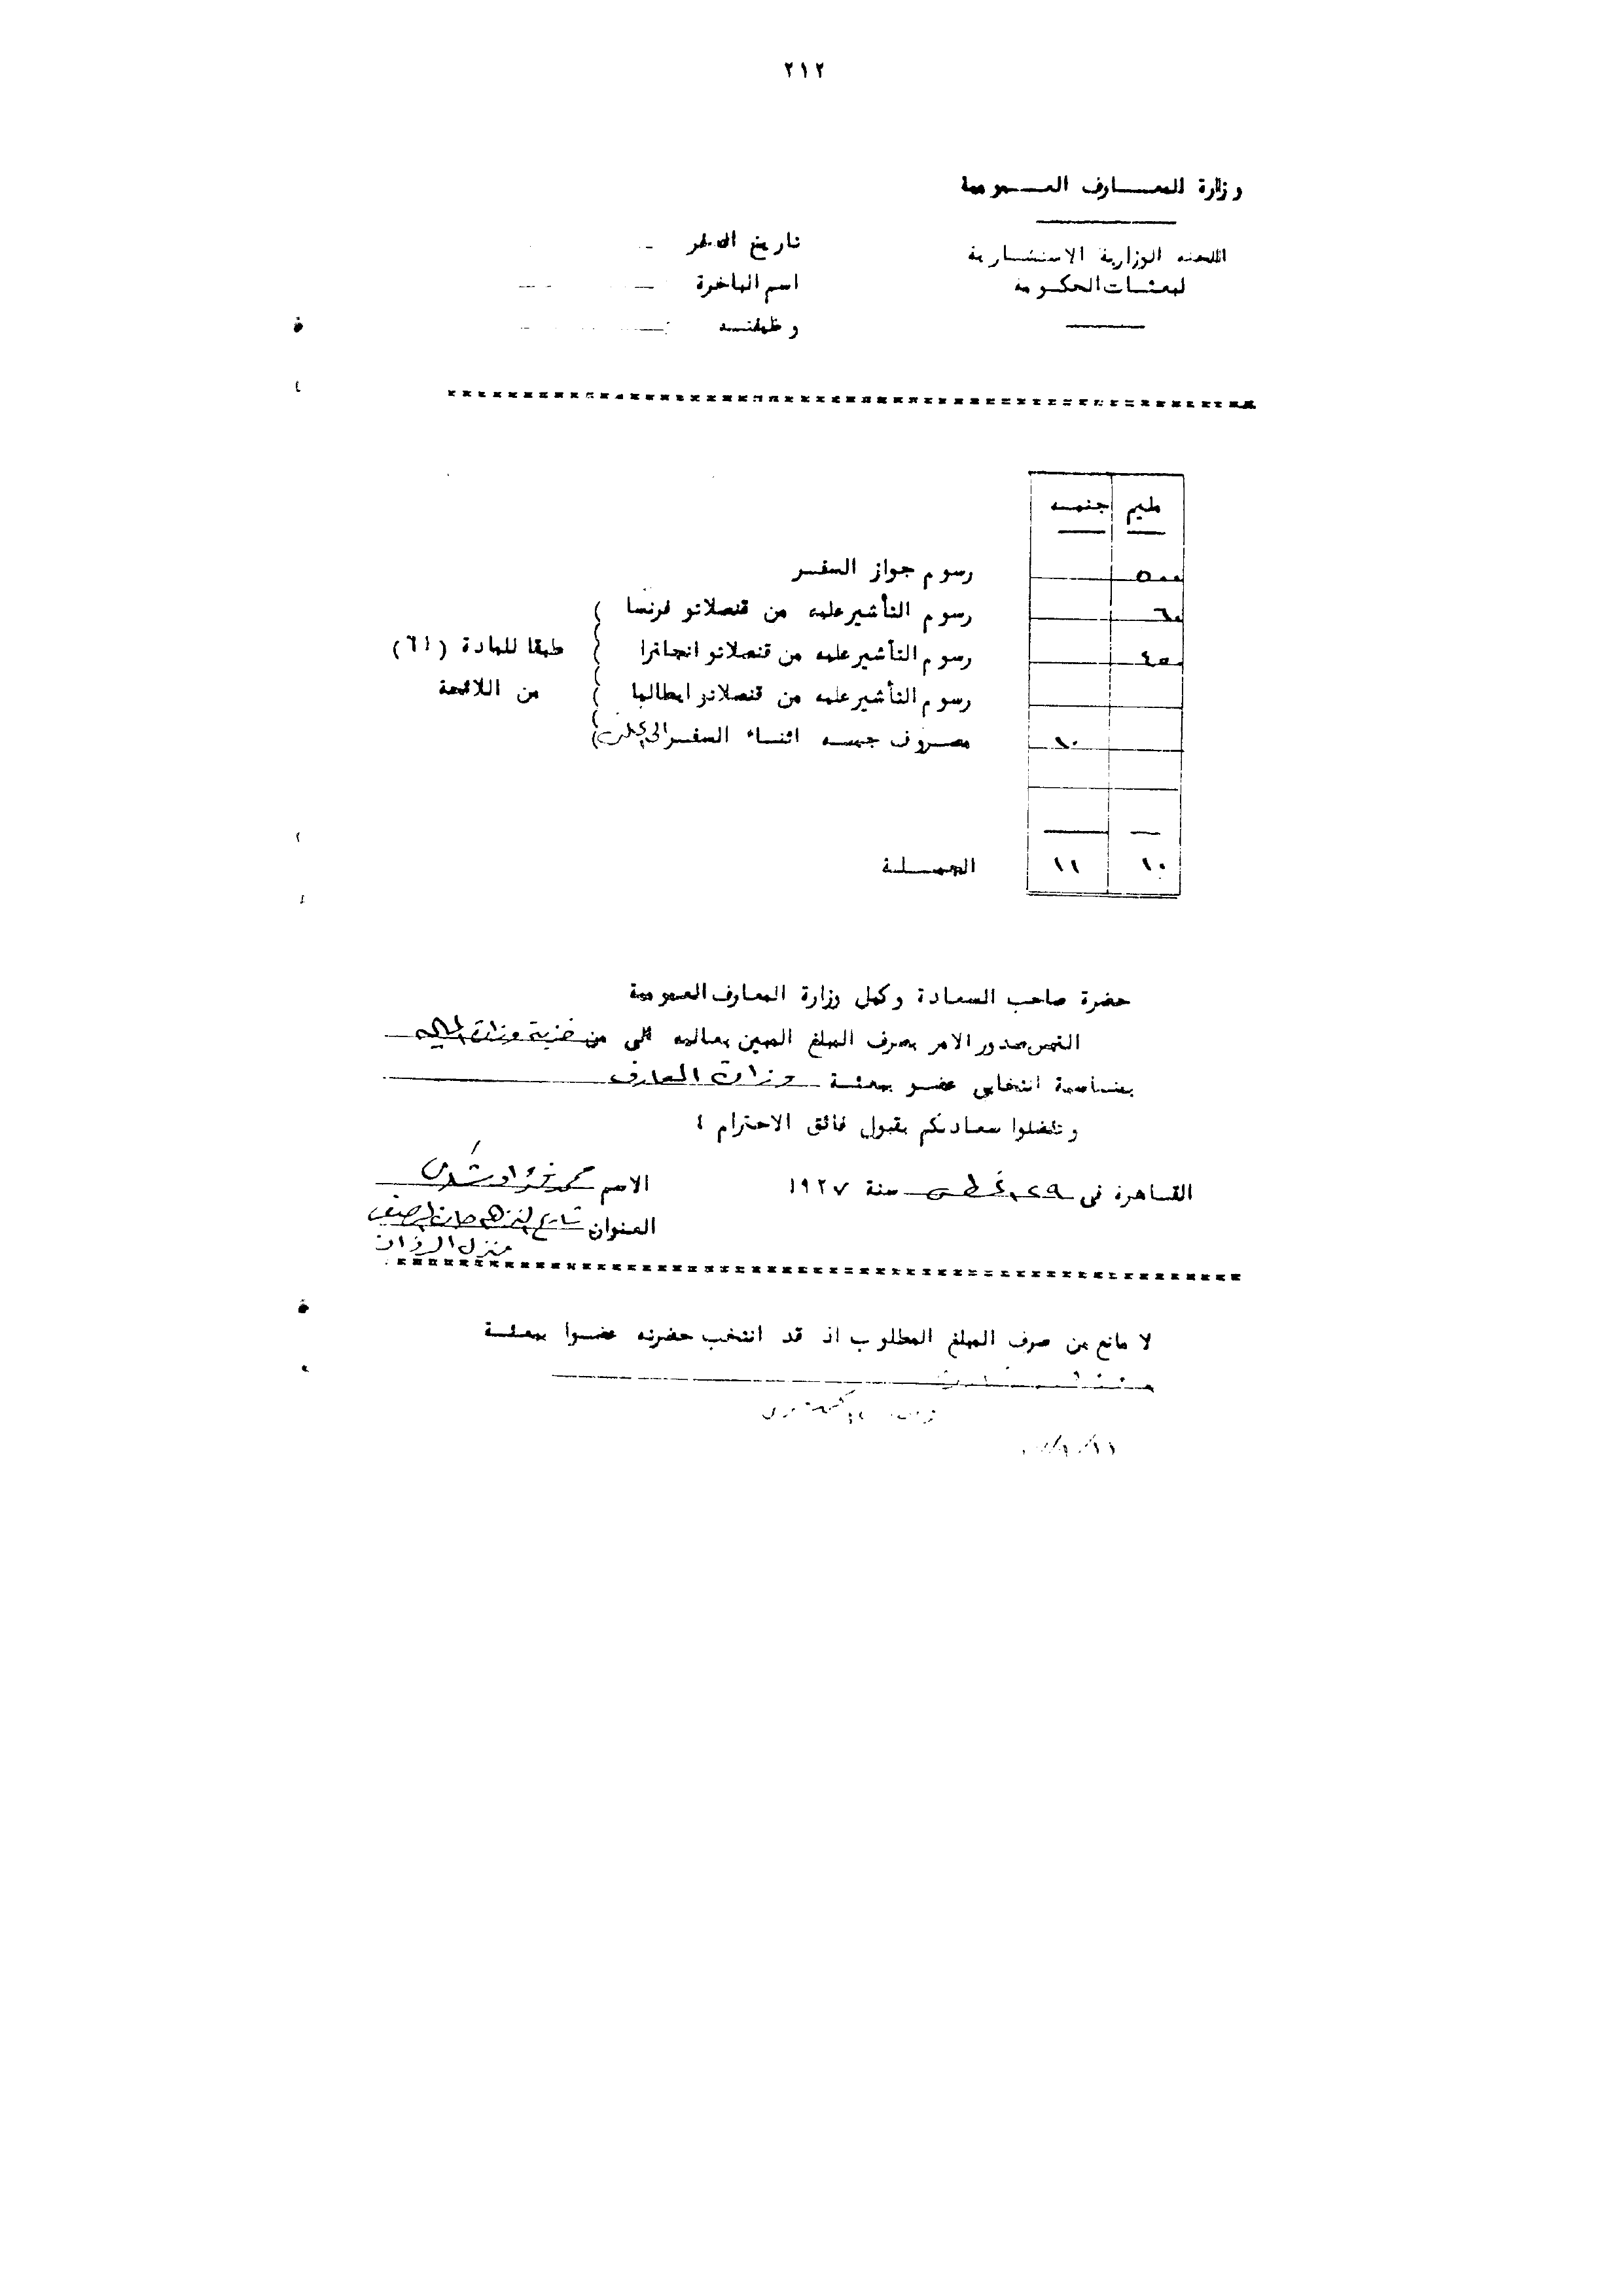 ٢١٢
وزارة المعارف العمومية
اللجنه الوزارية الاستشارية
لبعثات الحكومة
تاريخ السفر
اسم الباخرة
وظيفته
مليم جنيه
٥٠٠ رسوم جواز السفر
٦٠ رسوم التأشير عليه من قنصلاتو فرنسا
٤٥٠ رسوم التأشير عليه من قنصلاتو انجلترا
رسوم التأشير عليه من قنصلاتو ايطاليا
طبقا للمادة (٦١)
من اللائحة
١٠ مصروف جيبه اثناء السفر الى
١٠ ١١ الجملة
حضرة صاحب السعادة وكيل وزارة المعارف العمومية
التمس صدور الامر بصرف المبلغ المبين بعاليه لى من خزينة وزارة الماليه
بمناسبة انتخابى عضو ببعثة وزارة المعارف
وتفضلوا سعادتكم بقبول فائق الاحترام ؛
القاهرة فى ٢٩ اغسطس سنة ١٩٢٧
الاسم محمد فؤاد شكرى
العنوان شارع
منزل
لا مانع من صرف المبلغ المطلوب اذ قد انتخب حضرته عضوا ببعثة